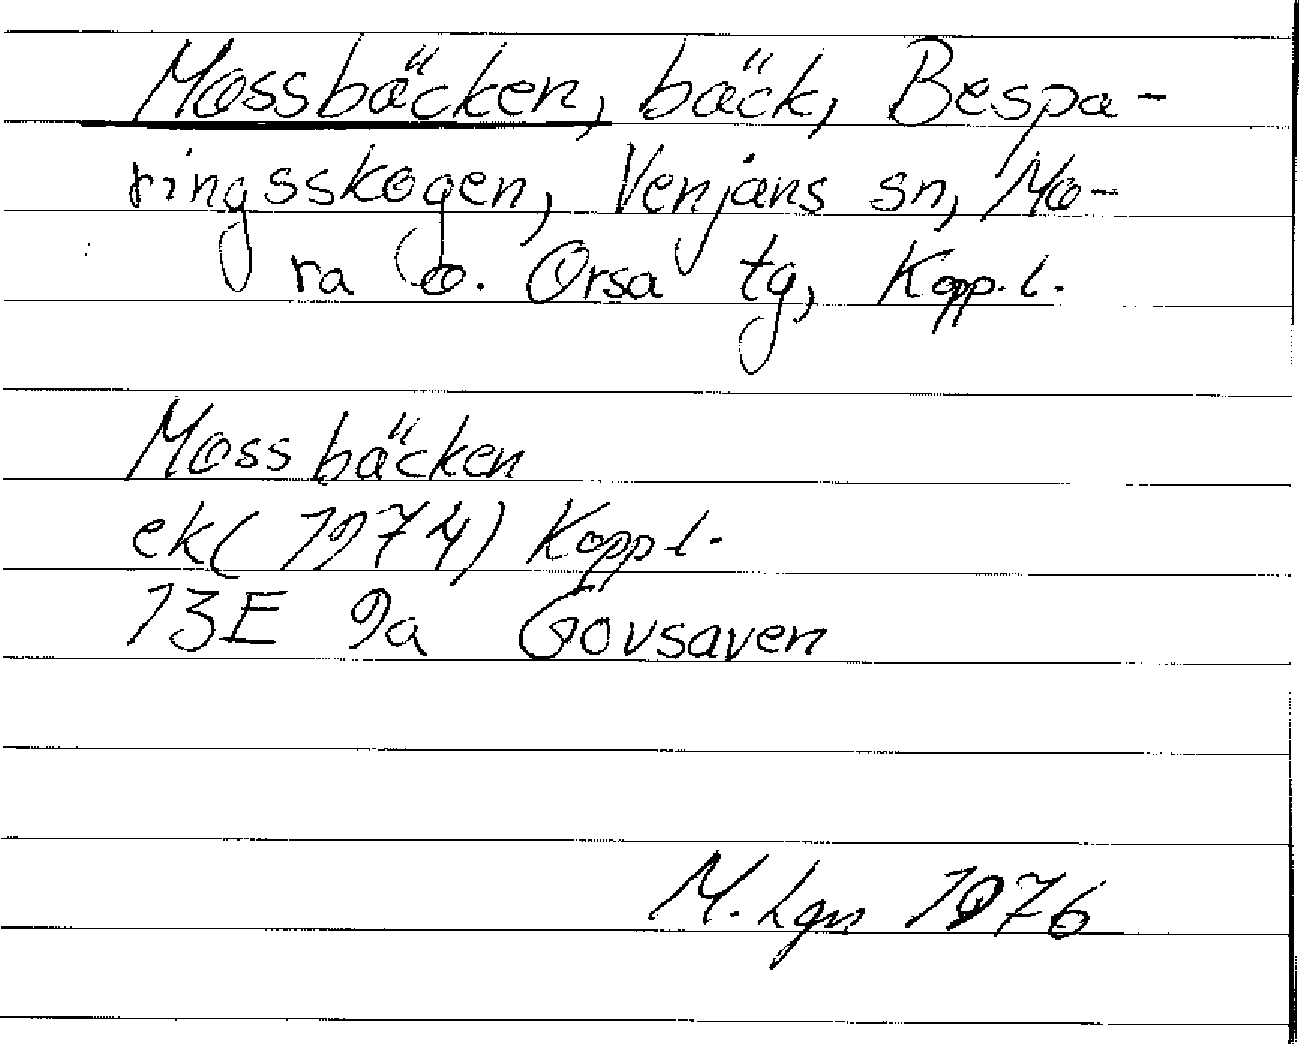 Mossbäcken, bäck, Bespa-
ringsskogen, Venjans sn, Mo-
ra o. Orsa tg, Kopp.l.
Mossbäcken
ek (1974) Koppl.
13E 9a Gövsaven
M. Lgn 1976